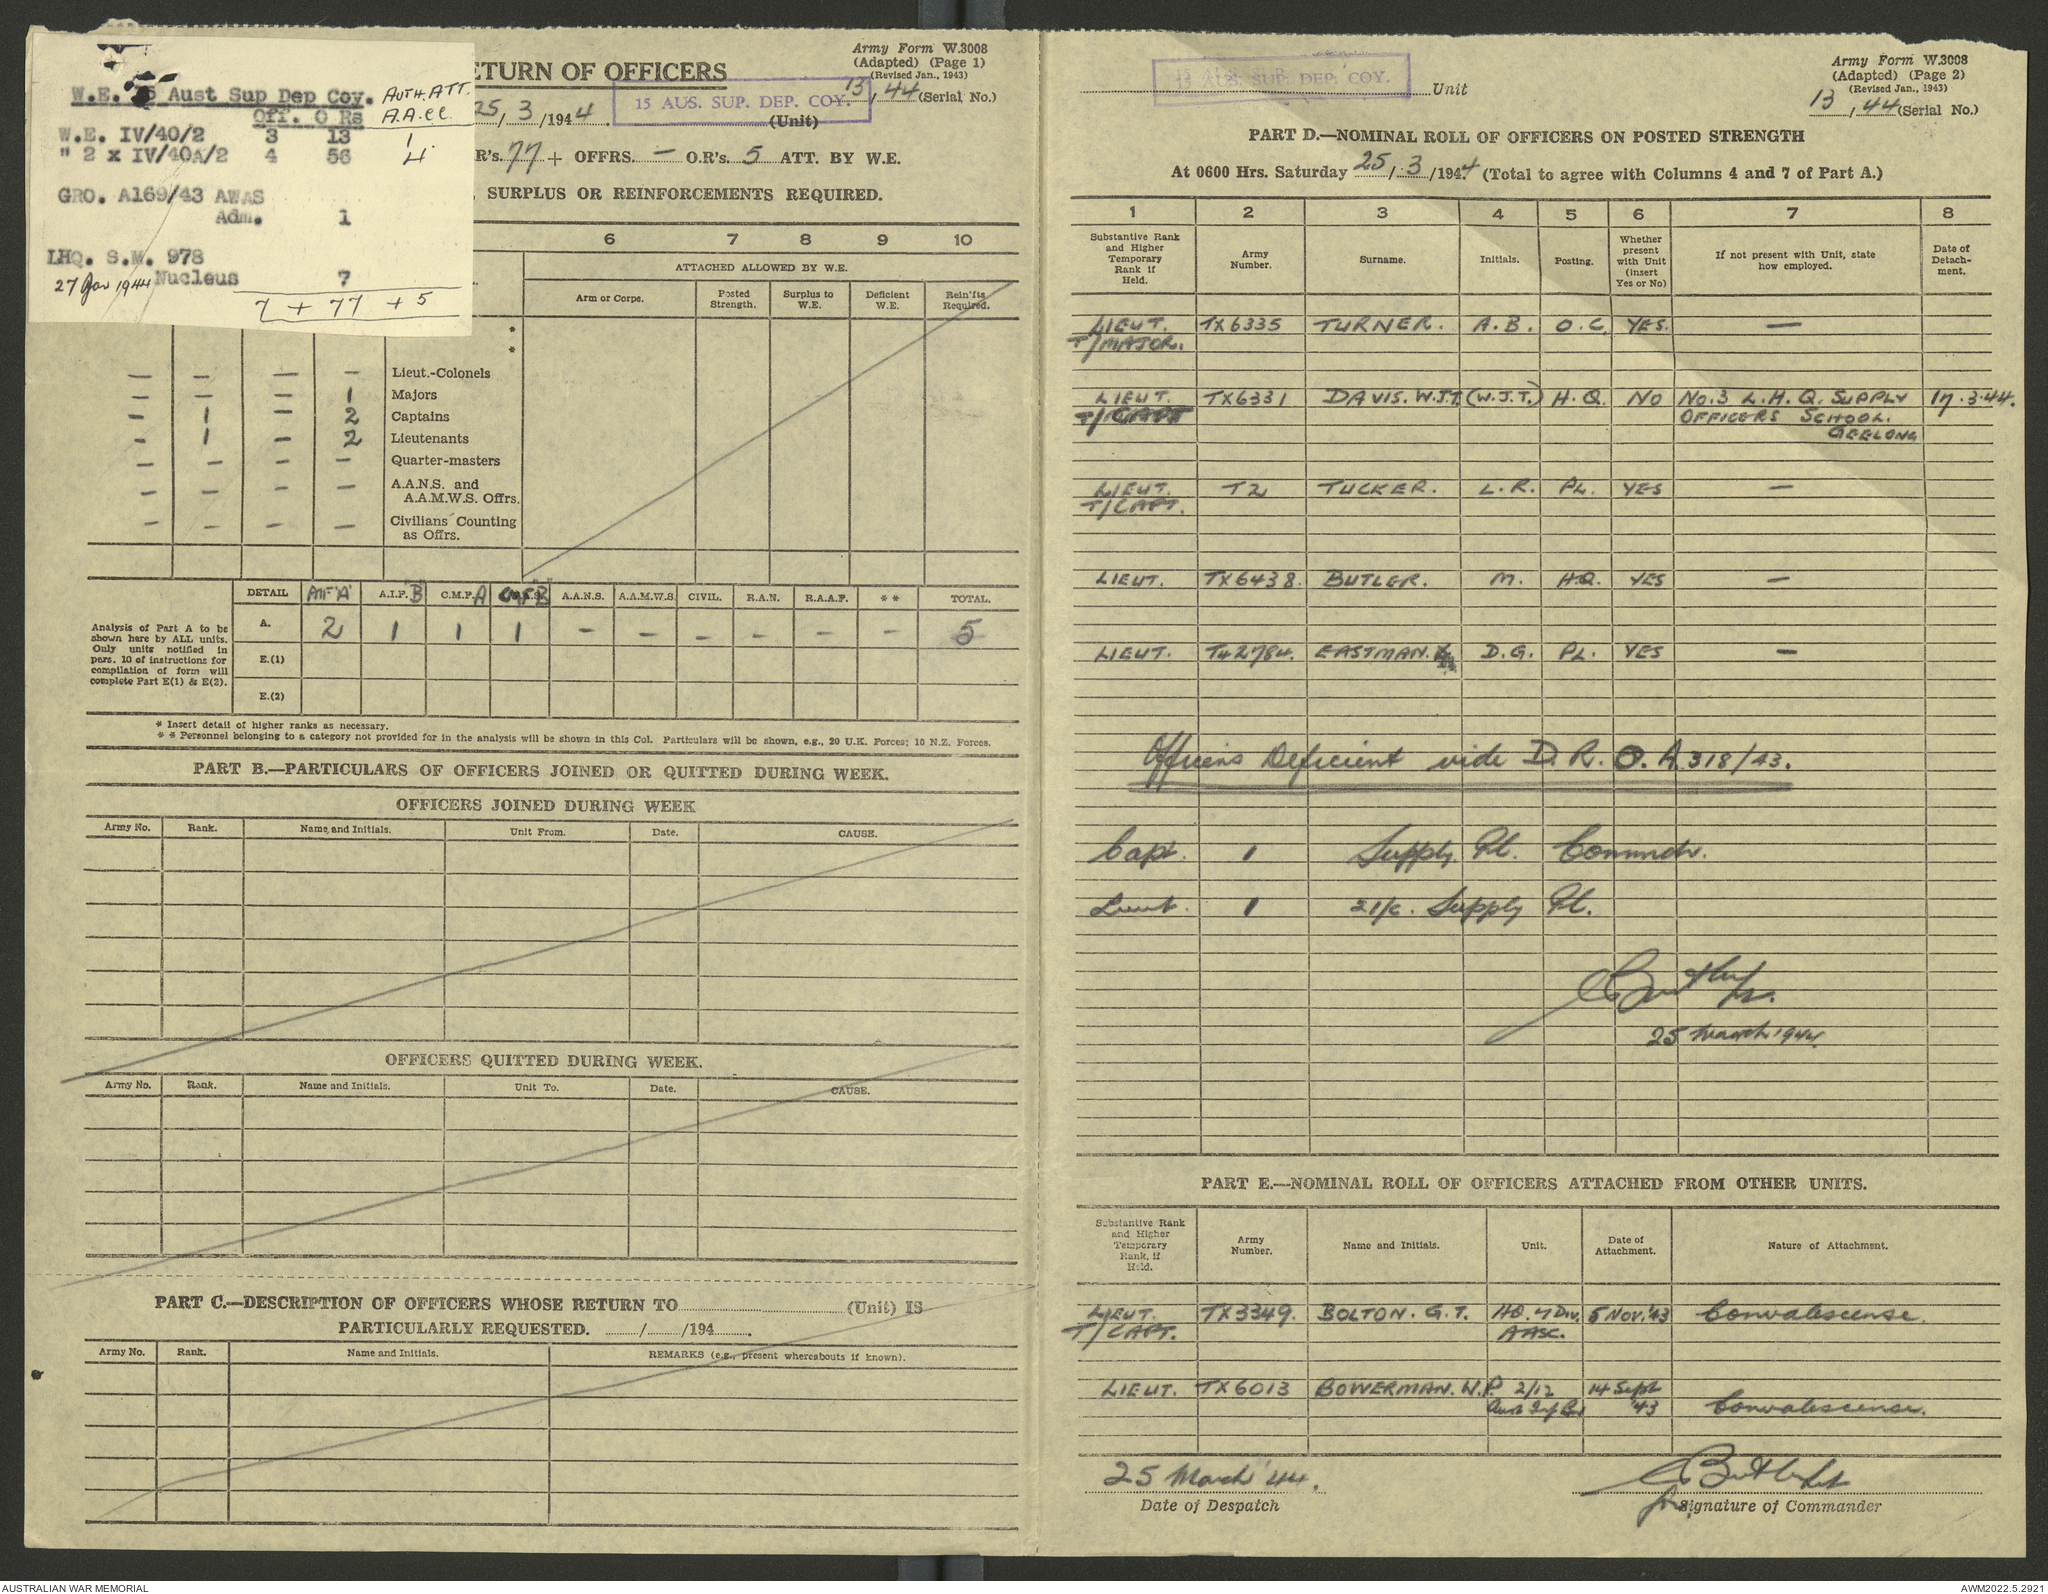 W.E. 15 Aust Sup Dep Coy. AUTH. ATT.
Off. O Rs A.A.CC.
W.E. IV/40/2 3 13 1
" 2 x IV/40A/2 4 56 4
GRO. A169/43 AWAS
Adm. 1
LHQ. S.M. 978
27 Jan 1944 Nucleus 7
7 + 77 + 5
Army Form W.3008
(Adapted) (Page 1)
(Revised Jan., 1943)
ETURN OF OFFICERS
13 / 44 (Serial No.)
25 / 3 /1944 15 AUS. SUP. DEP. COY. (Unit)
R's. 77 + OFFRS. — O.R's. 5 ATT. BY W.E.
, SURPLUS OR REINFORCEMENTS REQUIRED.
6 7 8 9 10
ATTACHED ALLOWED BY W.E.
Arm or Corps. Posted Strength. Surplus to W.E. Deficient W.E. Rein'fts Required.
*
*
— — — — Lieut.-Colonels
— — — 1 Majors
— 1 — 2 Captains
— 1 — 2 Lieutenants
— — — — Quarter-masters
— — — — A.A.N.S. and A.A.M.W.S. Offrs.
— — — — Civilians Counting as Offrs.
DETAIL AIF 'A' A.I.F. 'B' C.M.F. A CMF 'B' A.A.N.S. A.A.M.W.S. CIVIL. R.A.N. R.A.A.F. * * TOTAL.
Analysis of Part A to be
shown here by ALL units.
Only units notified in
pars. 10 of instructions for
compilation of form will
complete Part E(1) & E(2).
A. 2 1 1 1 — — — — — — 5
E.(1)
E.(2)
* Insert detail of higher ranks as necessary.
* * Personnel belonging to a category not provided for in the analysis will be shown in this Col. Particulars will be shown, e.g., 20 U.K. Forces; 10 N.Z. Forces.
PART B.—PARTICULARS OF OFFICERS JOINED OR QUITTED DURING WEEK.
OFFICERS JOINED DURING WEEK
Army No. Rank. Name and Initials. Unit From. Date. CAUSE.
OFFICERS QUITTED DURING WEEK.
Army No. Rank. Name and Initials. Unit To. Date. CAUSE.
PART C.—DESCRIPTION OF OFFICERS WHOSE RETURN TO (Unit) IS
PARTICULARLY REQUESTED. / /194
Army No. Rank. Name and Initials. REMARKS (e.g., present whereabouts if known).
Army Form W.3008
(Adapted) (Page 2)
(Revised Jan., 1943)
AUS. SUP. DEP. COY. Unit
13 / 44 (Serial No.)
PART D.—NOMINAL ROLL OF OFFICERS ON POSTED STRENGTH
At 0600 Hrs. Saturday 25 / 3 /1944 (Total to agree with Columns 4 and 7 of Part A.)
1 2 3 4 5 6 7 8
Substantive Rank and Higher Temporary Rank if Held. Army Number. Surname. Initials. Posting. Whether present with Unit (insert Yes or No) If not present with Unit, state how employed. Date of Detach-ment.
LIEUT. TX6335 TURNER. A.B. O.C. YES. —
T/MAJOR.
LIEUT. TX6331 DAVIS. W.J.T. (W.J.T.) H.Q. NO NO.3 L.H.Q. SUPPLY 17.3.44.
T/CAPT OFFICERS SCHOOL.
GEELONG
LIEUT. T2 TUCKER. L.R. PL. YES —
T/CAPT.
LIEUT. TX6438. BUTLER. M. HQ. YES —
LIEUT. T42784. EASTMAN. D.G. PL. YES —
Officers Deficient vide D.R.O. A.318/43.
Capt. 1 Supply Pl. Commdr.
Lieut. 1 2i/c. Supply Pl.
Butler
25 March 1944.
PART E.—NOMINAL ROLL OF OFFICERS ATTACHED FROM OTHER UNITS.
Substantive Rank and Higher Temporary Rank, if Held. Army Number. Name and Initials. Unit. Date of Attachment. Nature of Attachment.
LIEUT. TX3349. BOLTON. G.T. HQ. 7 Div. 5 NOV.'43 Convalescense.
T/CAPT. AASC.
LIEUT. TX6013 BOWERMAN. W.P. 2/12 14 Sept
Aust Inf Bn '43 Convalescense.
25 March '44. Butler Lt
Date of Despatch for Signature of Commander
AUSTRALIAN WAR MEMORIAL AWM2022.5.2921